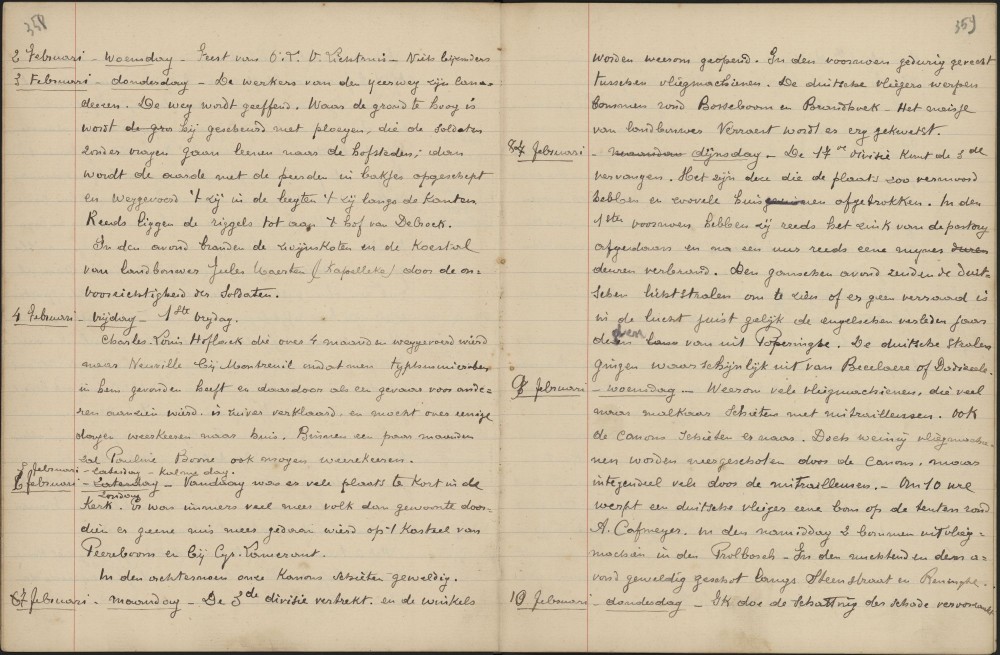 358
2 Februari - woensdag - Feest van O.L.V. Lichtmis - Niets bijzonders
3 Februari - donderdag - De werkers van den ijzerweg zijn Cana-
deezen. De weg wordt geeffend. Waar de grond te hoog is
wordt de gron hij gescheurd met ploegen, die de soldaten
zonder vragen gaan leenen naar de hofsteden; dan
wordt de aarde met de peerden in bakjes opgeschept
en weggevoerd 't zij in de leegten 't zij langs de kanten
Reeds liggen de riggels tot aan 't hof van Debrock.
In den avond branden de zwijnskoten en de Koestal
van landbouwer Jules Maerten (Kapelleke) door de on-
voorzichtigheid der Soldaten.
4 Februari - vrijdag - 1ste vrijdag.
Charles-Louis Hoflack die over 4 maanden weggevoerd wierd
naar Neuville bij Montreuil omdat men typhusmicroben
in hem gevonden heeft en daardoor als een gevaar voor ande-
ren aanzien wierd, is zuiver verklaard en mocht over eenige
dagen weerkeeren naar huis. Binnen een paar maanden
zal Pauline Boone ook mogen weerekeeren.
5 Februari - Zaterdag - Kalme dag.
6 Februari - Zaterdag - Vandaag was er vele plaats te kort in de
Zondag
Kerk. Er was immers veel meer volk dan gewoonte door-
dien er geene mis meer gedaan wierd op 't Kasteel van
Peereboom en bij Cyr. Lamerant.
In den achternoen onze Kanons schieten geweldig.
7 Februari - maandag - De 3de divisie vertrekt en de winkels
359
worden weerom geopend. In den voornoen gedurig gevecht
tusschen vliegmachienen. De duitsche vliegers werpen
bommen rond Bosseboom en Brandhoek - Het meisje
van landbouwer Verraest wordt er erg gekwetst.
8 Februari - maandag dijnsdag - De 17de divisie komt de 3de
vervangen. Het zijn deze die de plaats zoo vermoord
hebben en zoovele huizen afgetrokken. In den
1sten voornoen hebben zij reeds het zink van de pastory
afgedaan en na een uur reeds eene nieuwe duren
deuren verbrand. Den ganschen avond zenden de Duit-
schen lichtstralen om te zien of er geen verraad is
in de lucht juist gelijk de engelschen verleden jaar
deden van uit Poperinghe. De duitsche stralen
gingen waarschijnlijk uit van Becelaere of Dadizeele.
9 Februari - woensdag - Weerom vele vliegmachienen, die veel
naar malkaar schieten met mitrailleusen. Ook
de canons schieten er naar. Doch weinig vliegmachie-
nen worden neergeschoten door de canons, maar
integendeel vele door de mitrailleusen. - Om 10 ure
werpt een duitsche vlieger eene bom op de tenten rond
A. Cafmeyer. In den namiddag 2 bommen uit vlieg-
machien in den Trolbosch - In den nuchtend en den a-
vond geweldig geschot langs Steenstraat en Reninghe.
10 Februari - donderdag - Ik doe de Schatting der schade veroorzaakt